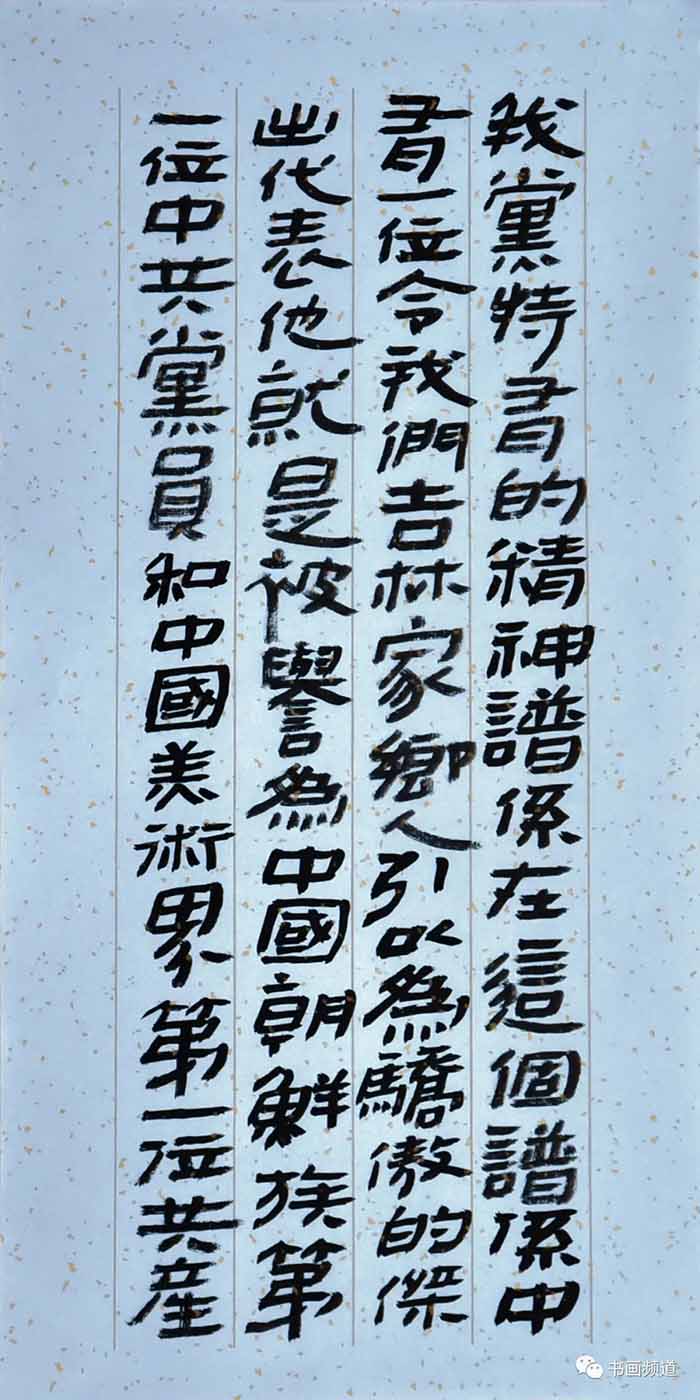 我黨特有的精神譜係在這個譜係中
有一位令我們吉林家鄉人引以為驕傲的傑
出代表他就是被譽為中國朝鮮族第
一位中共黨員和中國美術界第一位共産
书画频道